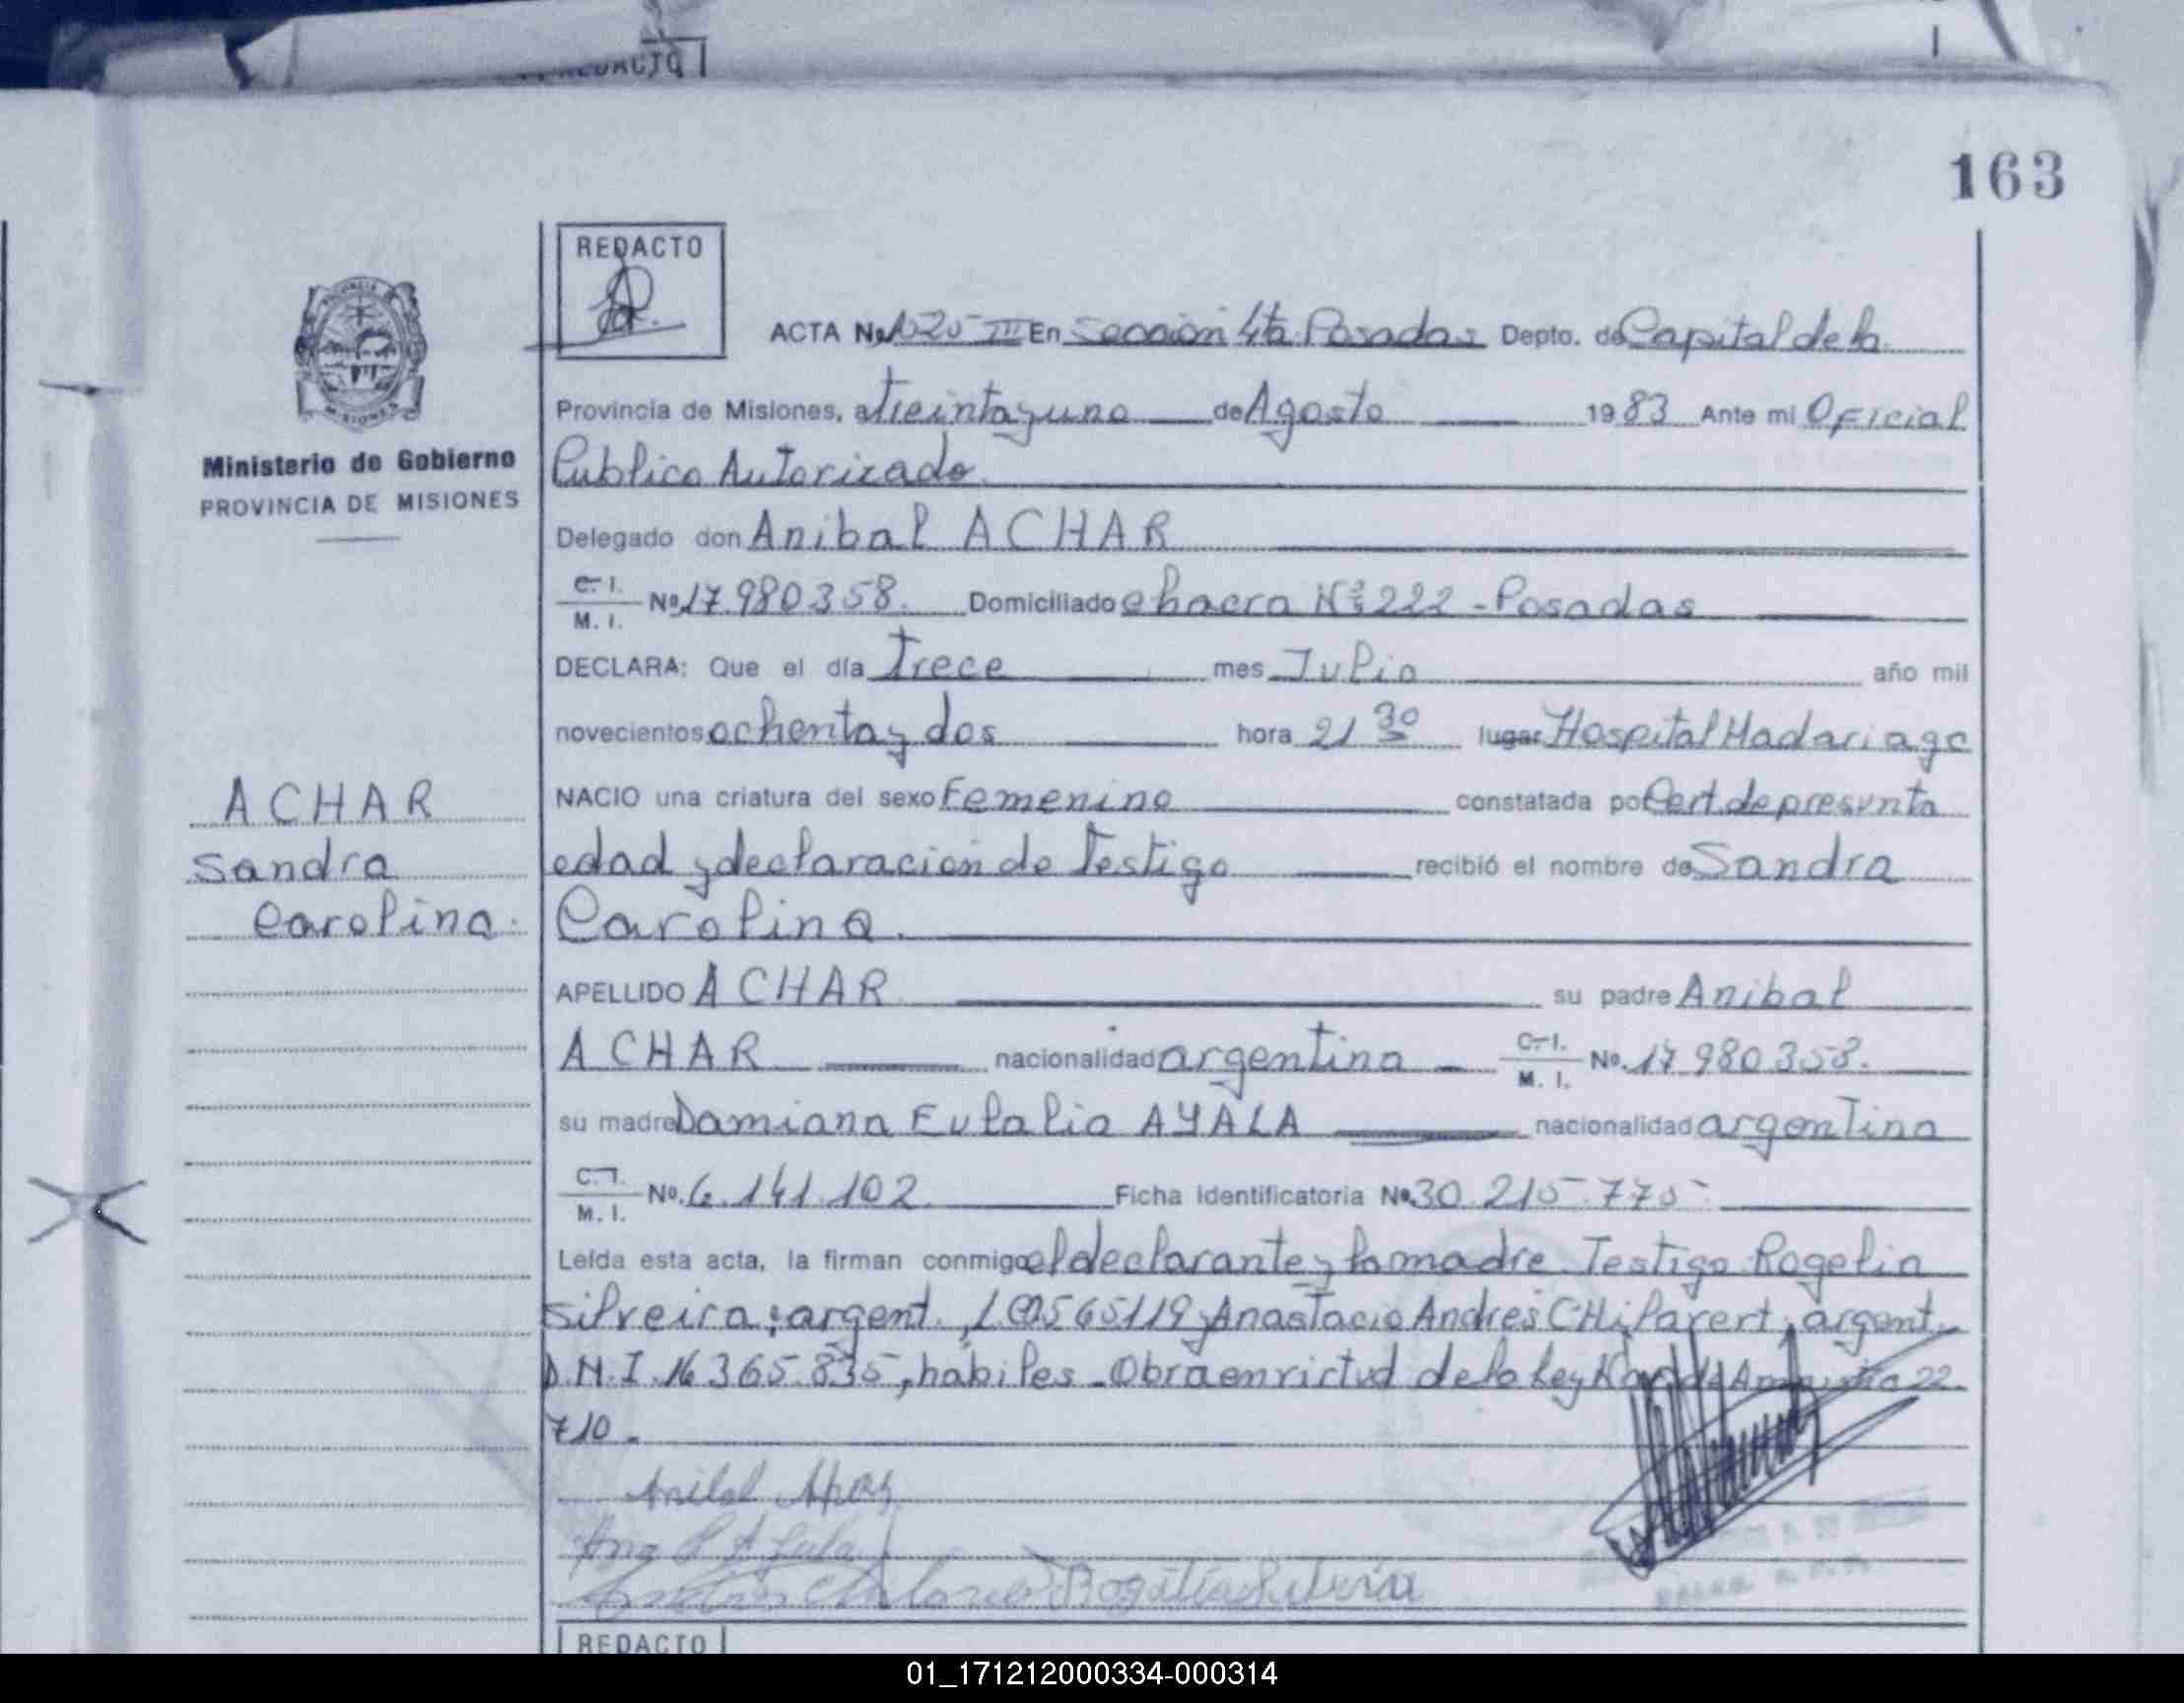 163
REDACTO
ACTA No. 1020 III En Sección 4ta. Posadas Depto. de Capital de la
Provincia de Misiones, a treinta y uno de Agosto 1983 Ante mi Oficial
Ministerio de Gobierno
Publico Autorizado.
PROVINCIA DE MISIONES
Delegado don Anibal ACHAR
C. I. M. I. Nº 17.980.358. Domiciliado chacra Nº 222 - Posadas
DECLARA: Que el día Trece mes Julio año mil
novecientos ochenta y dos hora 21 30 lugar Hospital Madariaga
ACHAR
NACIO una criatura del sexo Femenino constatada por Cert. de presunta
Sandra
edad y declaracion de Testigo recibió el nombre de Sandra
Carolina.
Carolina.
APELLIDO ACHAR su padre Anibal
ACHAR nacionalidad argentina C. I. M. I. Nº. 17.980.358.
su madre Damiana Eulalia AYALA nacionalidad argentina
C. I. M. I. Nº. 6.141.102. Ficha identificatoria Nº 30.215.775
Leída esta acta, la firman conmigo el declarante y la madre. Testigo Rogelia
Silveira; argent., 565119 y Anastacio Andres argent.
D.N.I. 16.365.835, hábiles. Obra en virtud de la Ley 22
710.
REDACTO
01_171212000334-000314